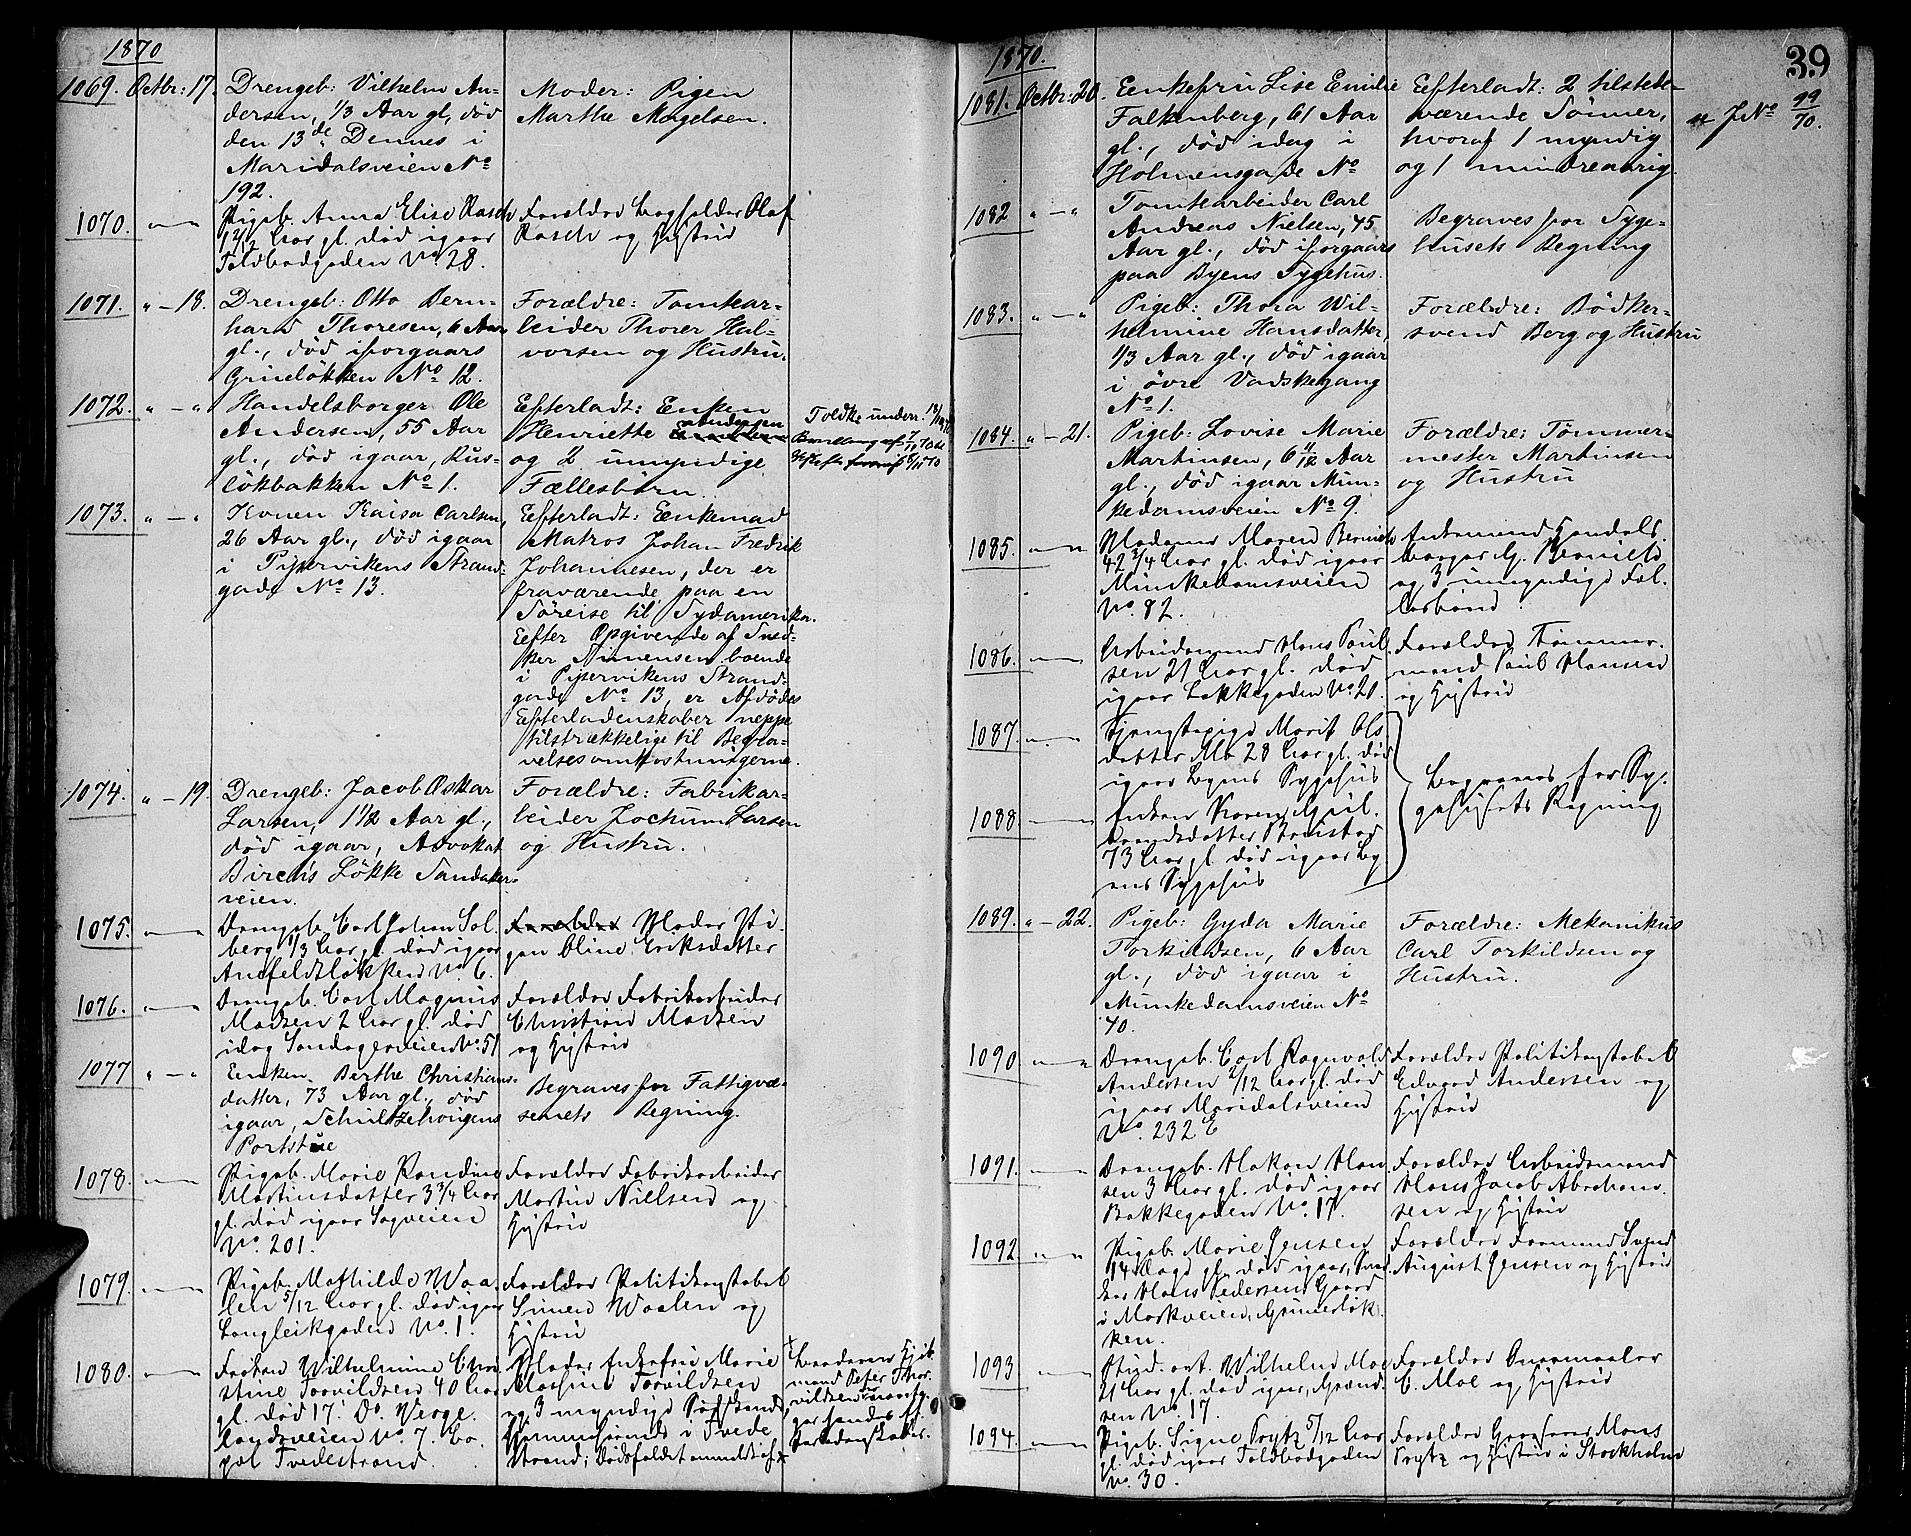 1870
1069. Octbr: 17. Drengeb: Vilhelm An-
dersen, 1/3 Aar gl, død
den 13de Dennes i
Maridalsveien No
192.
Moder: Pigen
Marthe Magelsen.
1070. " — " Pigeb. Anna Elise Rasch
1 1/2 Aar gl. død igaar
Toldbodgaden No. 28.
Forældre Bogholder Olaf
Rasch og Hustru
1071. " — 18. Drengeb: Otto Bern-
hard Thoresen, 6 Aar
gl., død iforgaars
Grünløkken No 12.
Forældre: Tomtear-
beider Thorer Hal-
vorsen og Hustru.
1072. " — " Handelsborger Ole
Andersen, 55 Aar
gl., død igaar, Rus-
løkbakken No 1.
Efterladt: Enken
Henriette Andersen
og 2 umyndige
Fællesbørn.
Toldk. underr. 18/10
1073. " — " Konen Kaisa Carlsen,
26 Aar gl., død igaar
i Pipervikens Strand-
gade No 13.
Efterladt: Enkemand
Matros Johan Fredrik
Johannesen, der er
fraværende paa en
Søreise til Sydamerika.
Efter Opgivende af Sned-
ker Simensen, boende
i Pipervikens Strand-
gade No 13, er Afdødes
Efterladenskaber neppe
tilstrækkelige til Begra-
velsesomkostningerne.
1074. " — 19. Drengeb: Jacob Oskar
Larsen, 1 1/2 Aar gl.,
død igaar, Advokat
Birch's Løkke Sandaker-
veien.
Forældre: Fabrikar-
beider Jochum Larsen
og Hustru.
1075. " — " Drengeb. Carl Johan Sol-
berg 1/3 Aar gl. død igaar
Ankfeldtløkken No 6.
Forældre Moder Pi-
gen Oline Eriksdatter
1076. " — " Drengeb. Carl Magnus
Madsen 2 Aar gl. død
idag Sandagerveien No. 51
Forældre Fabrikarbeider
Christian Madsen
og Hustru
1077 " — " Enken Berthe Christians-
datter, 73 Aar gl., død
igaar, Schultzehougens
Portstue
Begraves for Fattigvæ-
senets Regning.
1078. " — " Pigeb. Marie Randine
Martinsdatter 3 3/4 Aar
gl. død igaar Sagveien
No. 201.
Forældre Fabrikarbeider
Martin Nielsen og
Hustru
1079. " — " Pigeb. Mathilde Waa-
len 5/12 Aar gl. død igaar
Langleikgaden No. 1.
Forældre Politikonstabel
Simen Waalen og
Hustru
1080. " — " Frøken Wilhelmine Chri
stine Torvildsen 40 Aar
gl. død 17. Ds. Verge-
landsveien No. 7. Bo-
pæl Tvedestrand.
Moder Enkefru Marie
Torvildsen
og 3 myndige Sødskende
i Tvede-
strand; Dødsfaldet anmeldt af x
x Broderen
mand Peter Thor-
vildsen
1870.
39
1081. Octbr: 20. Enkefru Lise Emilie
Falkenberg, 61 Aar
gl., død idag i
Holmensgade No
Efterladt: 2 tilstede-
værende Sønner,
hvoraf 1 myndig
og 1 mindreaarig.
J No 99/70.
1082 " — " Tomtearbeider Carl
Andreas Nielsen, 45
Aar gl., død iforgaars
paa Byens Sygehus.
Begraves for Syge-
husets Regning
1083. " — " Pigeb: Thora Wil-
helmine Hansdatter,
1/3 Aar gl., død igaar
i øvre Vadskegang
No 1.
Forældre: Bødker-
svend Berg og Hustru
1084. " — 21. Pigeb: Lovise Marie
Martinsen, 6 4/12 Aar
gl., død igaar Mun-
kedamsveien No 9.
Forældre: Tømmer-
mester Martinsen
og Hustru
1085. " — " Madame Maren Bernich
42 3/4 Aar gl. død igaar
Munkedamsveien
No. 82.
Enkemand Handels-
borger G. Bernich
og 3 umyndige Fæl-
lesbørn.
1086. " — " Arbeidsmand Hans Paul-
sen 21 Aar gl. død
igaar Bakkegaden No. 21.
Forældre Tømmer-
mand Paul Hansen
og Hustru
1087 " — " Tjenestepige Marit Ols
datter Mo 28 Aar gl. død
igaar Byens Sygehus
1088 " — " Enken Karen
73 Aar gl. død igaar By-
ens Sygehus
Begraves for Sy-
gehusets Regning
1089. " — 22. Pigeb: Gyda Marie
Torkildsen, 6 Aar
gl., død igaar i
Munkedamsveien No
40.
Forældre: Mekanikus
Carl Torkildsen og
Hustru.
1090 " — " Drengeb. Carl Ragnvald
Andersen 2/12 Aar gl. død
igaar Maridalsveien
No. 232 E
Forældre Politikonstabel
Edvard Andersen og
Hustru
1091. " — " Drengeb. Hakon Han
sen 3 Aar gl. død igaar
Bakkegaden No. 17.
Forældre Arbeidsmand
Hans Jacob Abraham-
sen og Hustru
1092. " — " Pigeb. Marie Jensen
14 Dage gl. død igaar, Sned-
ker Hans Pedersens Gaard
i Markveien, Grünerløk
ken.
Forældre Formand Svend
August Jensen og Hustru
1093 " — " Stud. art. Wilhelm Moe
21 Aar gl. død igaar, Grænd-
sen No. 17.
Forældre
C. Moe og Hustru
1094. " — " Pigeb. Signe Prytz 5/12 Aar
gl. død igaar Toldbodgaden
No. 30.
Forældre Grosserer Mons
Prytz og Hustru i Stockholm